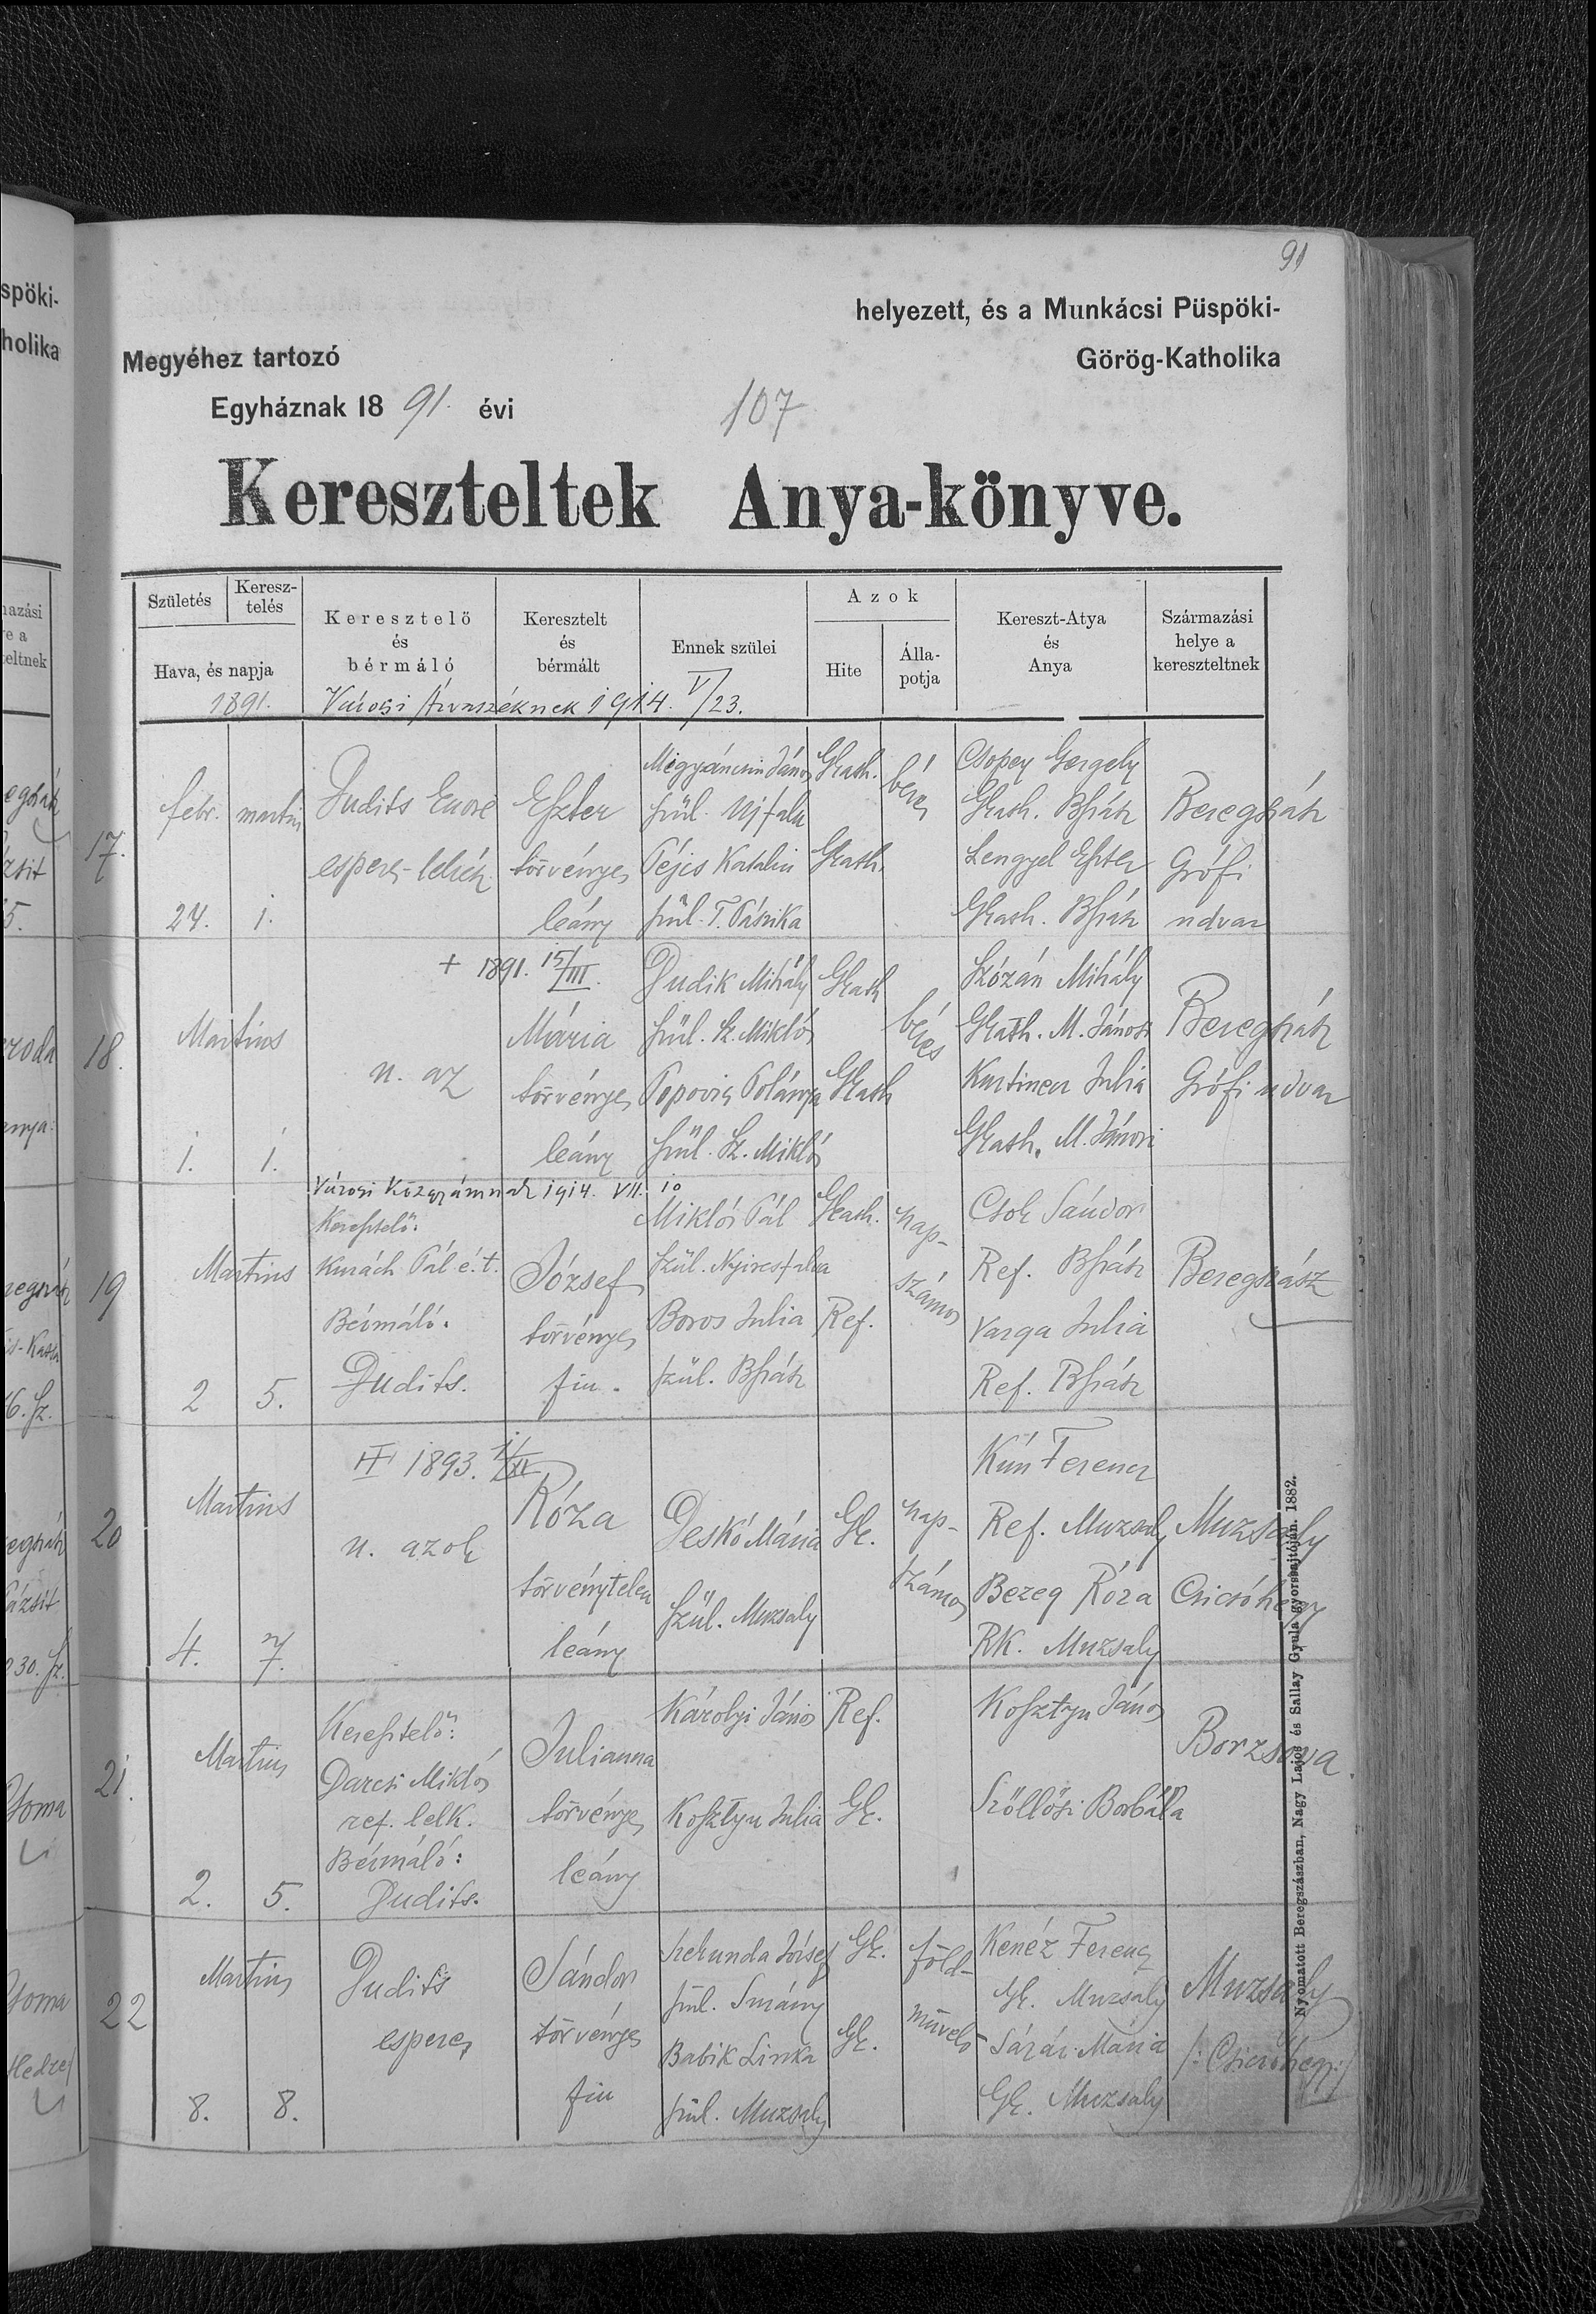 91
helyezett, és a Munkácsi Püspöki-
Megyéhez tartozó
Görög-Katholika
Egyháznak 1891. évi
107
Kereszteltek Anya-könyve.
Születés
Keresztelés
Hava, és napja
1891.
Keresztelő
és
bérmáló
Keresztelt
és
bérmált
Ennek szülei
Azok
Hite
Álla-
potja
Kereszt-Atya
és
Anya
Származási
helye a
kereszteltnek
Városi Árvaszéknek 1914. V/23.
17.
febr.
24.
martius
1.
Dudits Endre
esperes-lelkész
Eszter
törvényes
leány
János
szül. Ujfalu
Katalin
szül. T. Pásika
Gkath.
Gkath.
béres
Csopey Gergely
Gkath. Bszász
Lengyel Eszter
Gkath. Bszász
Beregszász
Grófi
udvar
+ 1891. 15/III.
18.
Martius
1.
1.
u. az
Mária
törvényes
leány
Dudik Mihály
szül. Sz. Miklós
Popovics Polánya
szül. Sz. Miklós
Gkath
Gkath
béres
Szózán Mihály
Gkath. M. Jánosi
Julia
Gkath. M. Jánosi
Beregszász
Grófi udvar
19
Martius
2
5.
Városi Közgyámnak 1914. VII. 10
Keresztelő:
Kurách Pál é. t.
Bérmáló:
Dudits.
József
törvényes
fiu.
Miklós Pál
szül. Nyiresfalva
Boros Julia
szül. Bszász
Gkath.
Ref.
nap-
számos
Csok Sándor
Ref. Bszász
Varga Julia
Ref. Bszász
Beregszász
20
Martius
4.
7.
1893.
u. azok
Róza
törvénytelen
leány
Deskó Mária
szül. Muzsaly
Gk.
nap-
számos
Kún Ferencz
Ref. Muzsaly
Bereg Róza
RK. Muzsaly
Muzsaly
Csicsóhegy
21.
Martius
2.
5.
Keresztelő:
Darcsi Miklós
ref. lelk.
Bérmáló:
Dudits.
Julianna
törvényes
leány
Károlyi János
Kosztyu Julia
Ref.
Gk.
Kosztyu János
Szöllősi Borbála
Borzsova.
22
Martius
8.
8.
Dudits
esperes
Sándor
törvényes
fiu
Szekunda József
szül. Surány
Babik Linka
szül. Muzsaly
Gk.
Gk.
föld-
műves
Kenéz Ferencz
Gk. Muzsaly
Mária
Gk. Muzsaly
Muzsaly
/: Csicsóhegy :/
Nyomatott Beregszászban, Nagy Lajos és Sallay Gyula gyorssajtóján. 1882.